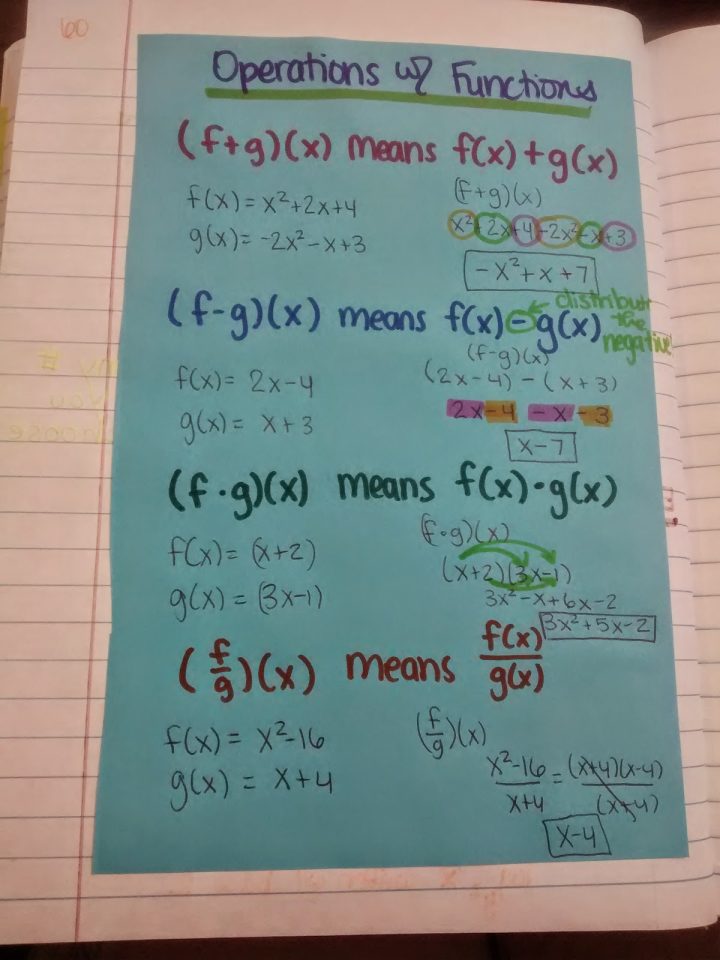 60
Operations w/ Functions
(f+g)(x) means f(x)+g(x)
f(x)=x²+2x+4
g(x)=-2x²-x+3
(f+g)(x)
x²+2x+4-2x²-x+3
-x²+x+7
(f-g)(x) means f(x)-g(x)
← distribute the negative!
f(x)= 2x-4
g(x)= x+3
(f-g)(x)
(2x-4)-(x+3)
2x-4 -x-3
x-7
(f·g)(x) means f(x)·g(x)
f(x)=(x+2)
g(x)=(3x-1)
(f·g)(x)
(x+2)(3x-1)
3x²-x+6x-2
3x²+5x-2
(f/g)(x) means f(x)/g(x)
f(x)= x²-16
g(x)= x+4
(f/g)(x)
x²-16/x+4 = (x+4)(x-4)/(x+4)
x-4